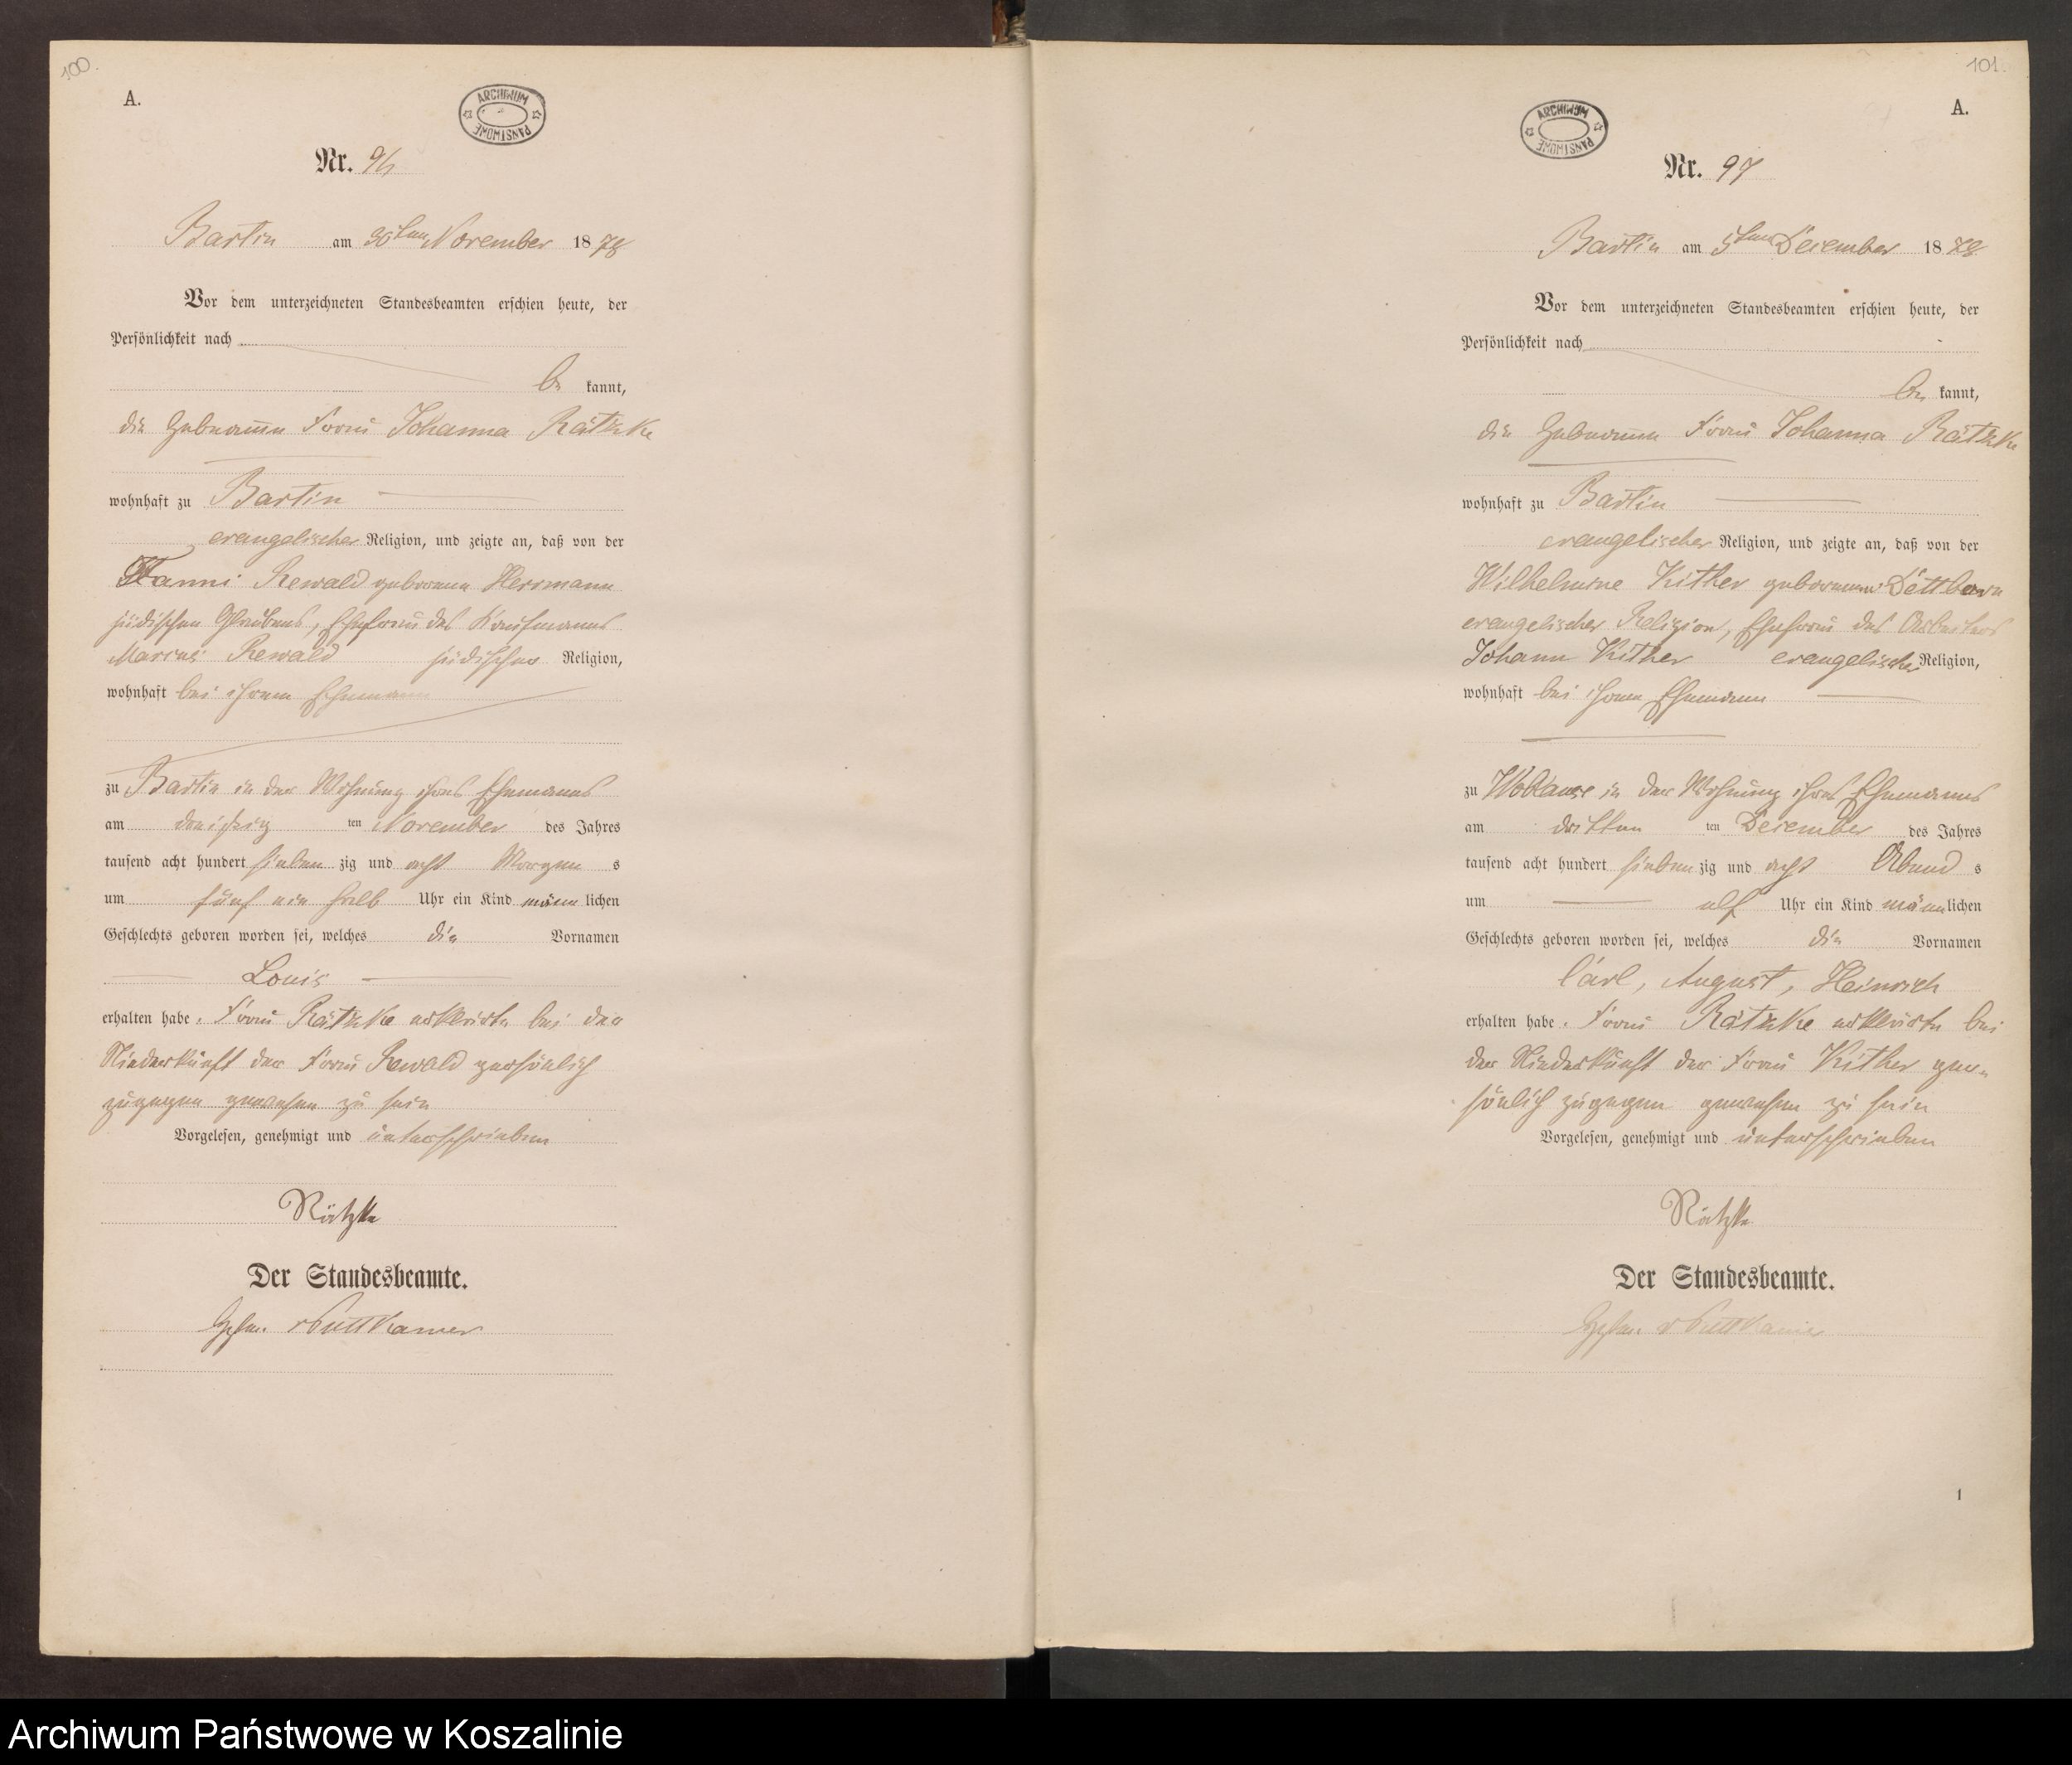 100.
A.
ARCHIWUM PAŃSTWOWE
Nr. 96
Bartin am 30ten November 1878
Vor dem unterzeichneten Standesbeamten erschien heute, der
Persönlichkeit nach
be kannt,
die Hebeamme Frau Johanna Rätzke
wohnhaft zu Bartin
evangelischer Religion, und zeigte an, daß von der
Fanni Rewald geborene Herrmann
jüdischen Glaubens, Ehefrau des Kaufmanns
Marcus Rewald jüdischer Religion,
wohnhaft bei ihrem Ehemann
zu Bartin in der Wohnung ihres Ehemanns
am dreißig ten November des Jahres
tausend acht hundert sieben zig und acht Morgen s
um fünf ein halb Uhr ein Kind männ lichen
Geschlechts geboren worden sei, welches die Vornamen
Louis
erhalten habe. Frau Rätzke erklärte bei der
Niederkunft der Frau Rewald persönlich
zugegen gewesen zu sein
Vorgelesen, genehmigt und unterschrieben
Rätzke
Der Standesbeamte.
v Puttkamer
101.
A.
ARCHIWUM PAŃSTWOWE
Nr. 97
Bartin am 5ten December 1878
Vor dem unterzeichneten Standesbeamten erschien heute, der
Persönlichkeit nach
be kannt,
die Hebeamme Frau Johanna Rätzke
wohnhaft zu Bartin
evangelischer Religion, und zeigte an, daß von der
Wilhelmine Kither geborenen Dettborn
evangelischer Religion, Ehefrau des Arbeiters
Johann Kither evangelischer Religion,
wohnhaft bei ihrem Ehemann
zu Woblanse in der Wohnung ihres Ehemanns
am dritten ten December des Jahres
tausend acht hundert sieben zig und acht Abend s
um elf Uhr ein Kind männlichen
Geschlechts geboren worden sei, welches die Vornamen
Carl, August, Heinrich
erhalten habe. Frau Rätzke erklärte bei
der Niederkunft der Frau Kither per-
sönlich zugegen gewesen zu sein
Vorgelesen, genehmigt und unterschrieben
Rätzke
Der Standesbeamte.
v Puttkamer
1
Archiwum Państwowe w Koszalinie